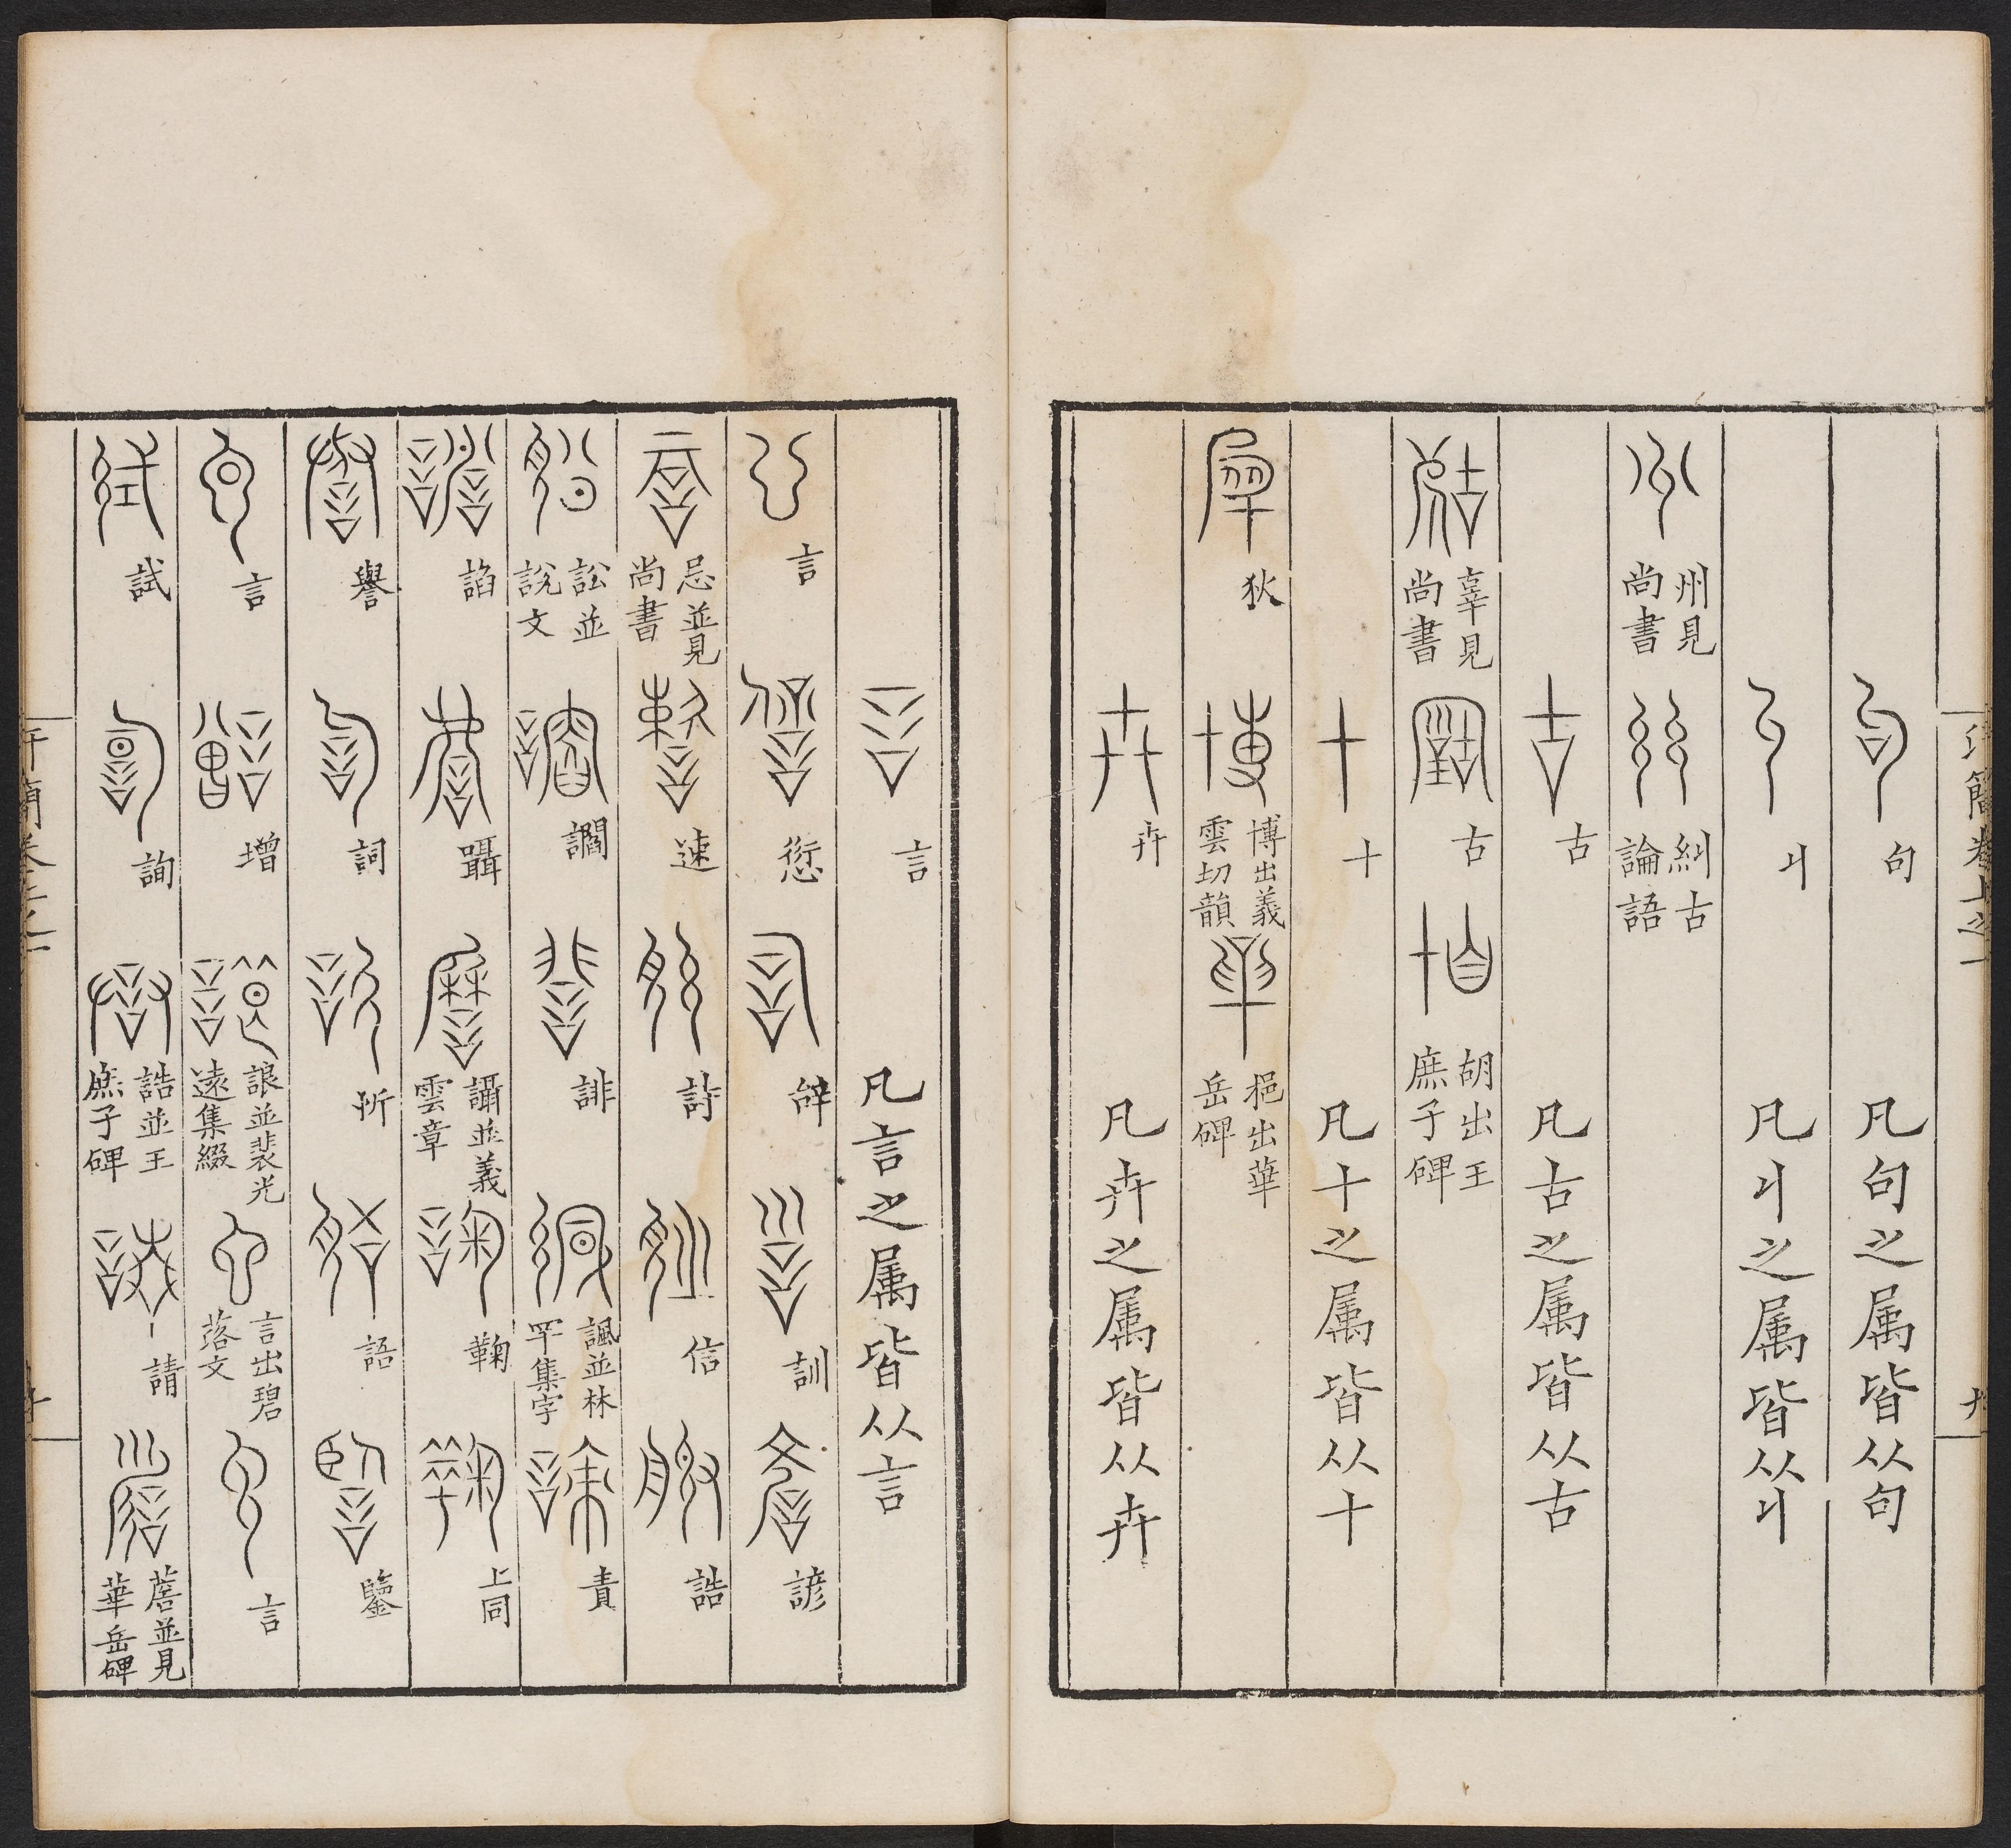 句 凡句之属皆从句
丩 凡丩之属皆从丩
州見尚書 糾古論語
古 凡古之属皆从古
辜見尚書 古 胡出王庶子碑
十 凡十之属皆从十
狄 博出義雲切韻 出華岳碑
卉 凡卉之属皆从卉
言 凡言之属皆从言
言 愆 辞 訓 諺
忌並見尚書 速 詩 信 誥
訟並說文 讕 誹 諷並林罕集字 責
諂 囁 讘並義雲章 鞠 上同
譽 詞 折 語 鑒
言 增 詪並裴光遠集綴 言出碧落文 言
試 詢 誥並王庶子碑 請 華岳碑